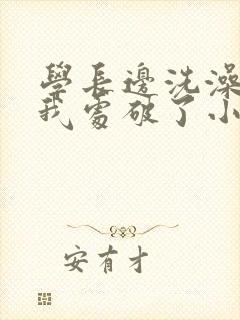 學長邊洗澡
我處破了小
安有才